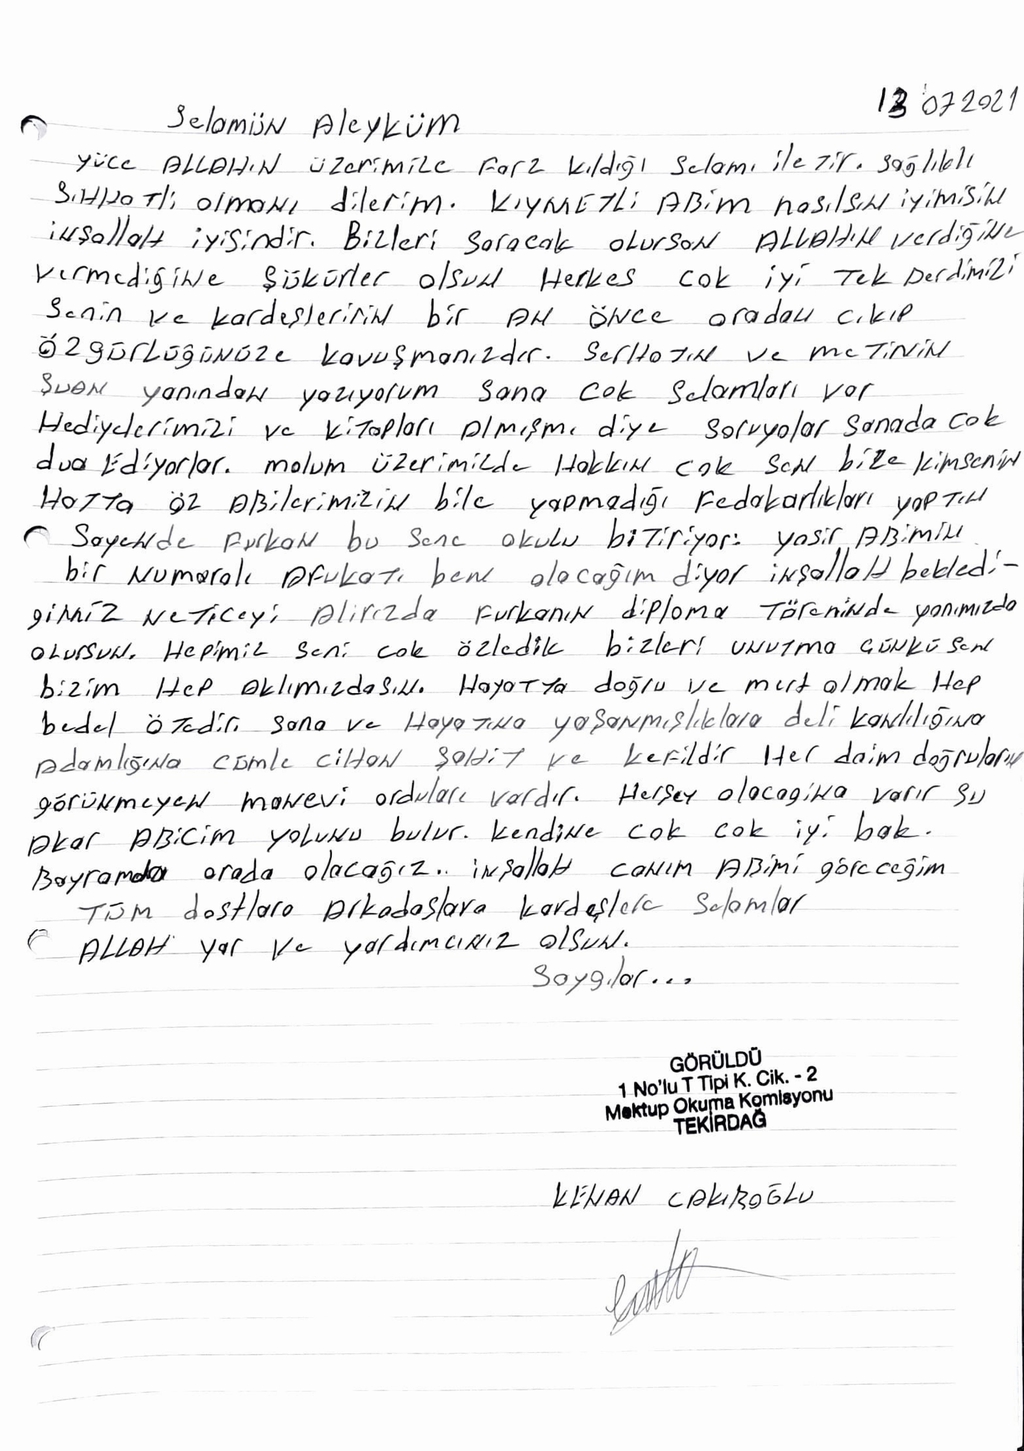 13 07 2021
Selamün Aleyküm
Yüce ALLAHIN üzerimize Farz kıldığı Selamı ile Tir. Sağlıklı
SıHHaTli olmanı dilerim. KIYMETLİ ABim nasılsın iyimisin
inşallah iyisindir. Bizleri Soracak olursan ALLAHIN verdiğine
vermediğine Şükürler olsun Herkes cok iyi Tek Derdimizi
Senin ve kardeşlerinin bir AN ÖNce oradan cıkıp
özgürlüğünüze kavuşmanızdır. SerHaTın ve meTİNİN
Şuan yanından yazıyorum Sana cok Selamları var
Hediyelerimizi ve kiTapları Almışmı diye Soruyolar Sanada cok
dua Ediyorlar. malum üzerimizde Hakkın cok Sen bize kimsenin
HaTTa öz ABilerimizin bile yapmadığı Fedakarlıkları yapTın
Sayende Furkan bu Sene okulu biTiriyor: yasir ABimin
bir Numaralı AfukaTı ben olacağım diyor inşallah bekledi-
ğimiz NeTiceyi Alırızda Furkanın diploma Töreninde yanımızda
olursun. Hepimiz Seni cok özledik bizleri unuTma Günkü Sen
bizim Hep Aklımızdasın. HayaTTa doğru ve mert olmak Hep
bedel öTedir. Sana ve HayaTına yaşanmışlıklara deli kanlılığına
Adamlığına Cümle ciHan ŞaHiT ve kefildir Her daim doğruların
görünmeyen manevi orduları vardır. Herşey olacagına varır Su
Akar ABicim yolunu bulur. kendine cok cok iyi bak.
Bayramda orada olacağız.. inşallah canım ABimi göreceğim
Tüm dostlara Arkadaşlara kardeşlere Selamlar
ALLAH yar ve yardımcınız olsun.
Saygılar...
GÖRÜLDÜ
1 No'lu T Tipi K. Cik. - 2
Mektup Okuma Komisyonu
TEKİRDAĞ
KENAN CAKIROĞLU